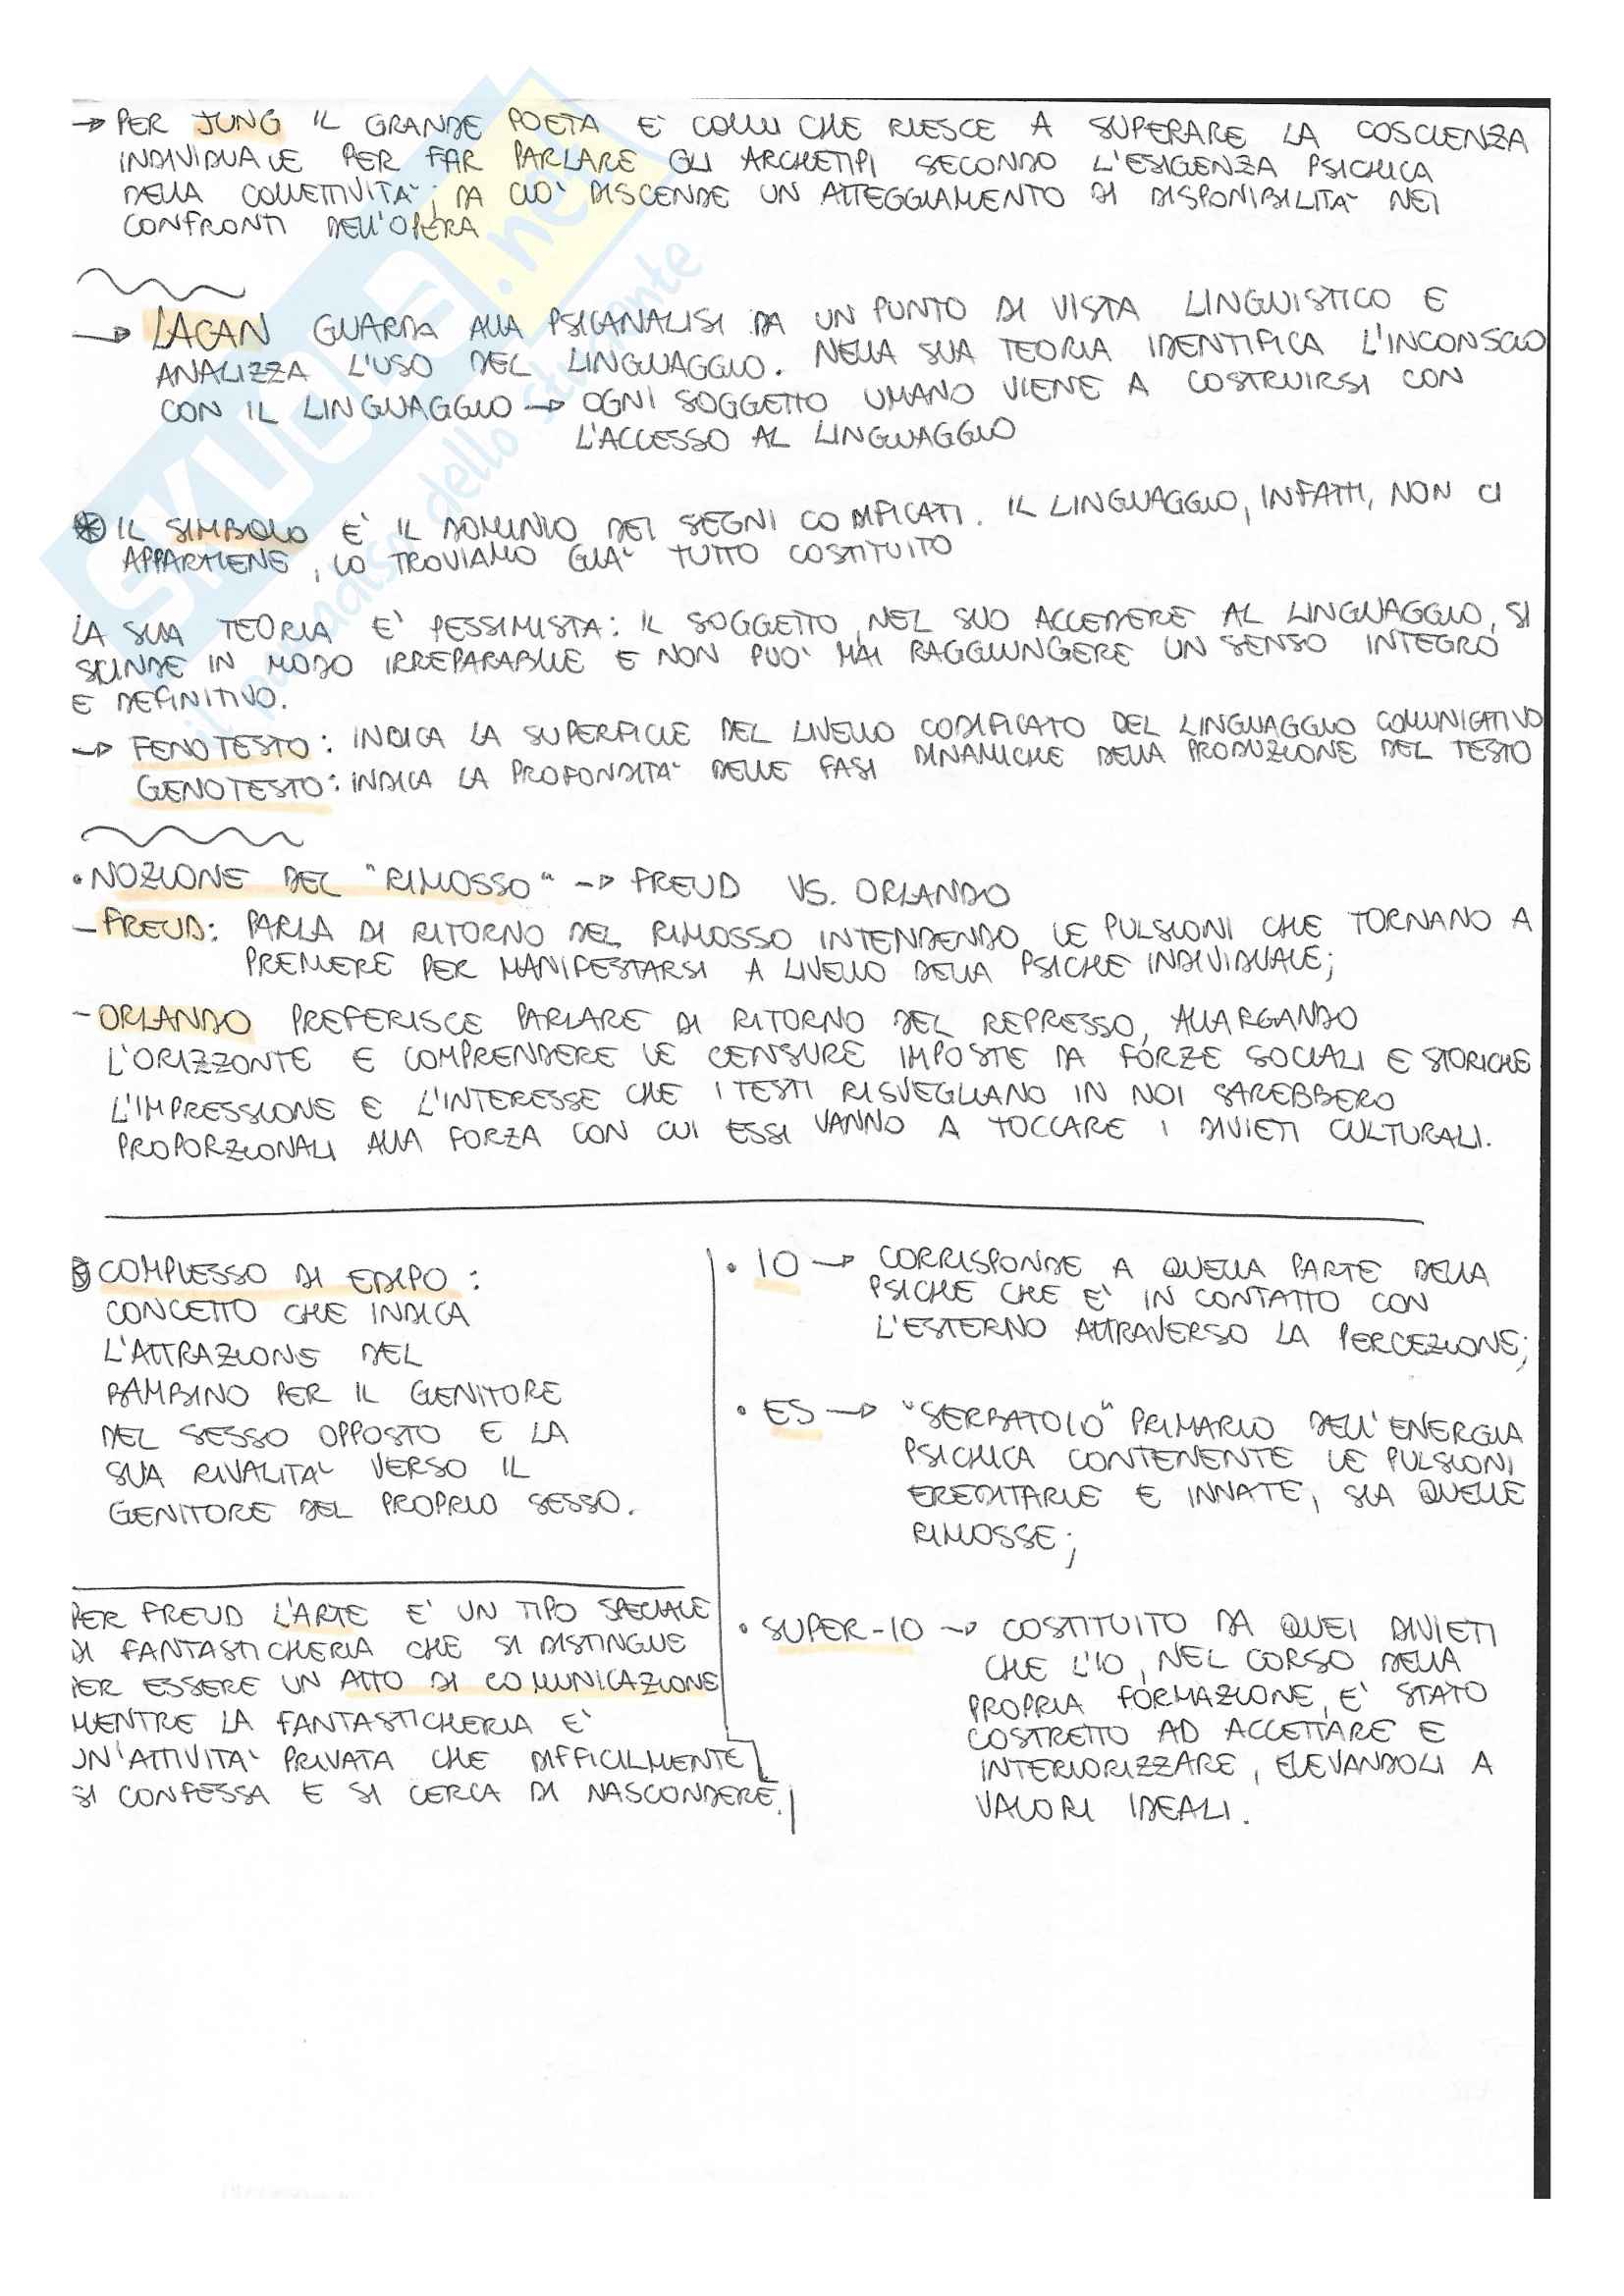 → PER JUNG IL GRANDE POETA E' COLUI CHE RIESCE A SUPERARE LA COSCIENZA
INDIVIDUALE PER FAR PARLARE GLI ARCHETIPI SECONDO L'ESIGENZA PSICHICA
DELLA COLLETTIVITA'; DA CIO' DISCENDE UN ATTEGGIAMENTO DI DISPONIBILITA' NEI
CONFRONTI DELL'OPERA
→ LACAN GUARDA ALLA PSICANALISI DA UN PUNTO DI VISTA LINGUISTICO E
ANALIZZA L'USO DEL LINGUAGGIO. NELLA SUA TEORIA IDENTIFICA L'INCONSCIO
CON IL LINGUAGGIO → OGNI SOGGETTO UMANO VIENE A COSTRUIRSI CON
L'ACCESSO AL LINGUAGGIO
* IL SIMBOLO E' IL DOMINIO DEI SEGNI CODIFICATI. IL LINGUAGGIO, INFATTI, NON CI
APPARTIENE, LO TROVIAMO GIA' TUTTO COSTITUITO
LA SUA TEORIA E' PESSIMISTA: IL SOGGETTO, NEL SUO ACCEDERE AL LINGUAGGIO, SI
SCINDE IN MODO IRREPARABILE E NON PUO' MAI RAGGIUNGERE UN SENSO INTEGRO
E DEFINITIVO.
→ FENOTESTO: INDICA LA SUPERFICIE DEL LIVELLO CODIFICATO DEL LINGUAGGIO COMUNICATIVO
GENOTESTO: INDICA LA PROFONDITA' DELLE FASI DINAMICHE DELLA PRODUZIONE DEL TESTO
• NOZIONE DEL "RIMOSSO" → FREUD VS. ORLANDO
- FREUD: PARLA DI RITORNO DEL RIMOSSO INTENDENDO LE PULSIONI CHE TORNANO A
PREMERE PER MANIFESTARSI A LIVELLO DELLA PSICHE INDIVIDUALE;
- ORLANDO PREFERISCE PARLARE DI RITORNO DEL REPRESSO, ALLARGANDO
L'ORIZZONTE E COMPRENDERE LE CENSURE IMPOSTE DA FORZE SOCIALI E STORICHE
L'IMPRESSIONE E L'INTERESSE CHE I TESTI RISVEGLIANO IN NOI SAREBBERO
PROPORZIONALI ALLA FORZA CON CUI ESSI VANNO A TOCCARE I DIVIETI CULTURALI.
COMPLESSO DI EDIPO:
CONCETTO CHE INDICA
L'ATTRAZIONE DEL
BAMBINO PER IL GENITORE
DEL SESSO OPPOSTO E LA
SUA RIVALITA' VERSO IL
GENITORE DEL PROPRIO SESSO.
PER FREUD L'ARTE E' UN TIPO SPECIALE
DI FANTASTICHERIA CHE SI DISTINGUE
PER ESSERE UN ATTO DI COMUNICAZIONE
MENTRE LA FANTASTICHERIA E'
UN'ATTIVITA' PRIVATA CHE DIFFICILMENTE
SI CONFESSA E SI CERCA DI NASCONDERE.
• IO → CORRISPONDE A QUELLA PARTE DELLA
PSICHE CHE E' IN CONTATTO CON
L'ESTERNO ATTRAVERSO LA PERCEZIONE;
• ES → "SERBATOIO" PRIMARIO DELL'ENERGIA
PSICHICA CONTENENTE LE PULSIONI
EREDITARIE E INNATE, SIA QUELLE
RIMOSSE;
• SUPER-IO → COSTITUITO DA QUEI DIVIETI
CHE L'IO, NEL CORSO DELLA
PROPRIA FORMAZIONE, E' STATO
COSTRETTO AD ACCETTARE E
INTERIORIZZARE, ELEVANDOLI A
VALORI IDEALI.
SKUOLA.net
il paradiso dello studente